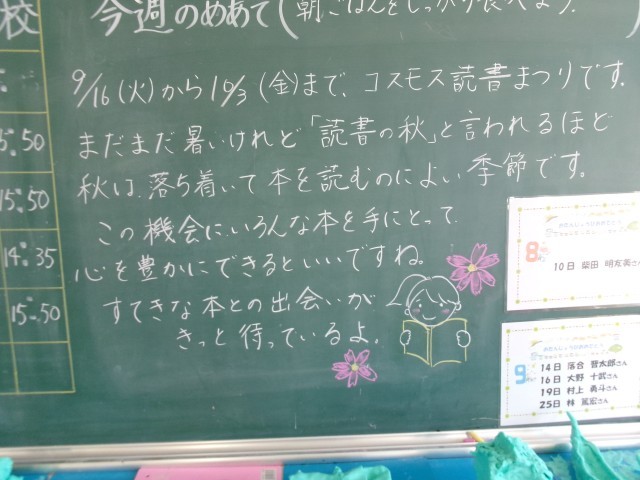 校
今週のめあて(朝ごはんをしっかり食べよう。)
9/16(火)から10/3(金)まで、コスモス読書まつりです。
まだまだ暑いけれど「読書の秋」と言われるほど
秋は、落ち着いて本を読むのによい季節です。
この機会にいろんな本を手にとって
心を豊かにできるといいですね。
すてきな本との出会いが
きっと待っているよ。
15:50
15:50
14:35
15:50
8
10日 柴田
9
14日 落合 晋太郎さん
16日 大野 十武さん
19日 村上 勇斗さん
25日 林 篤宏さん